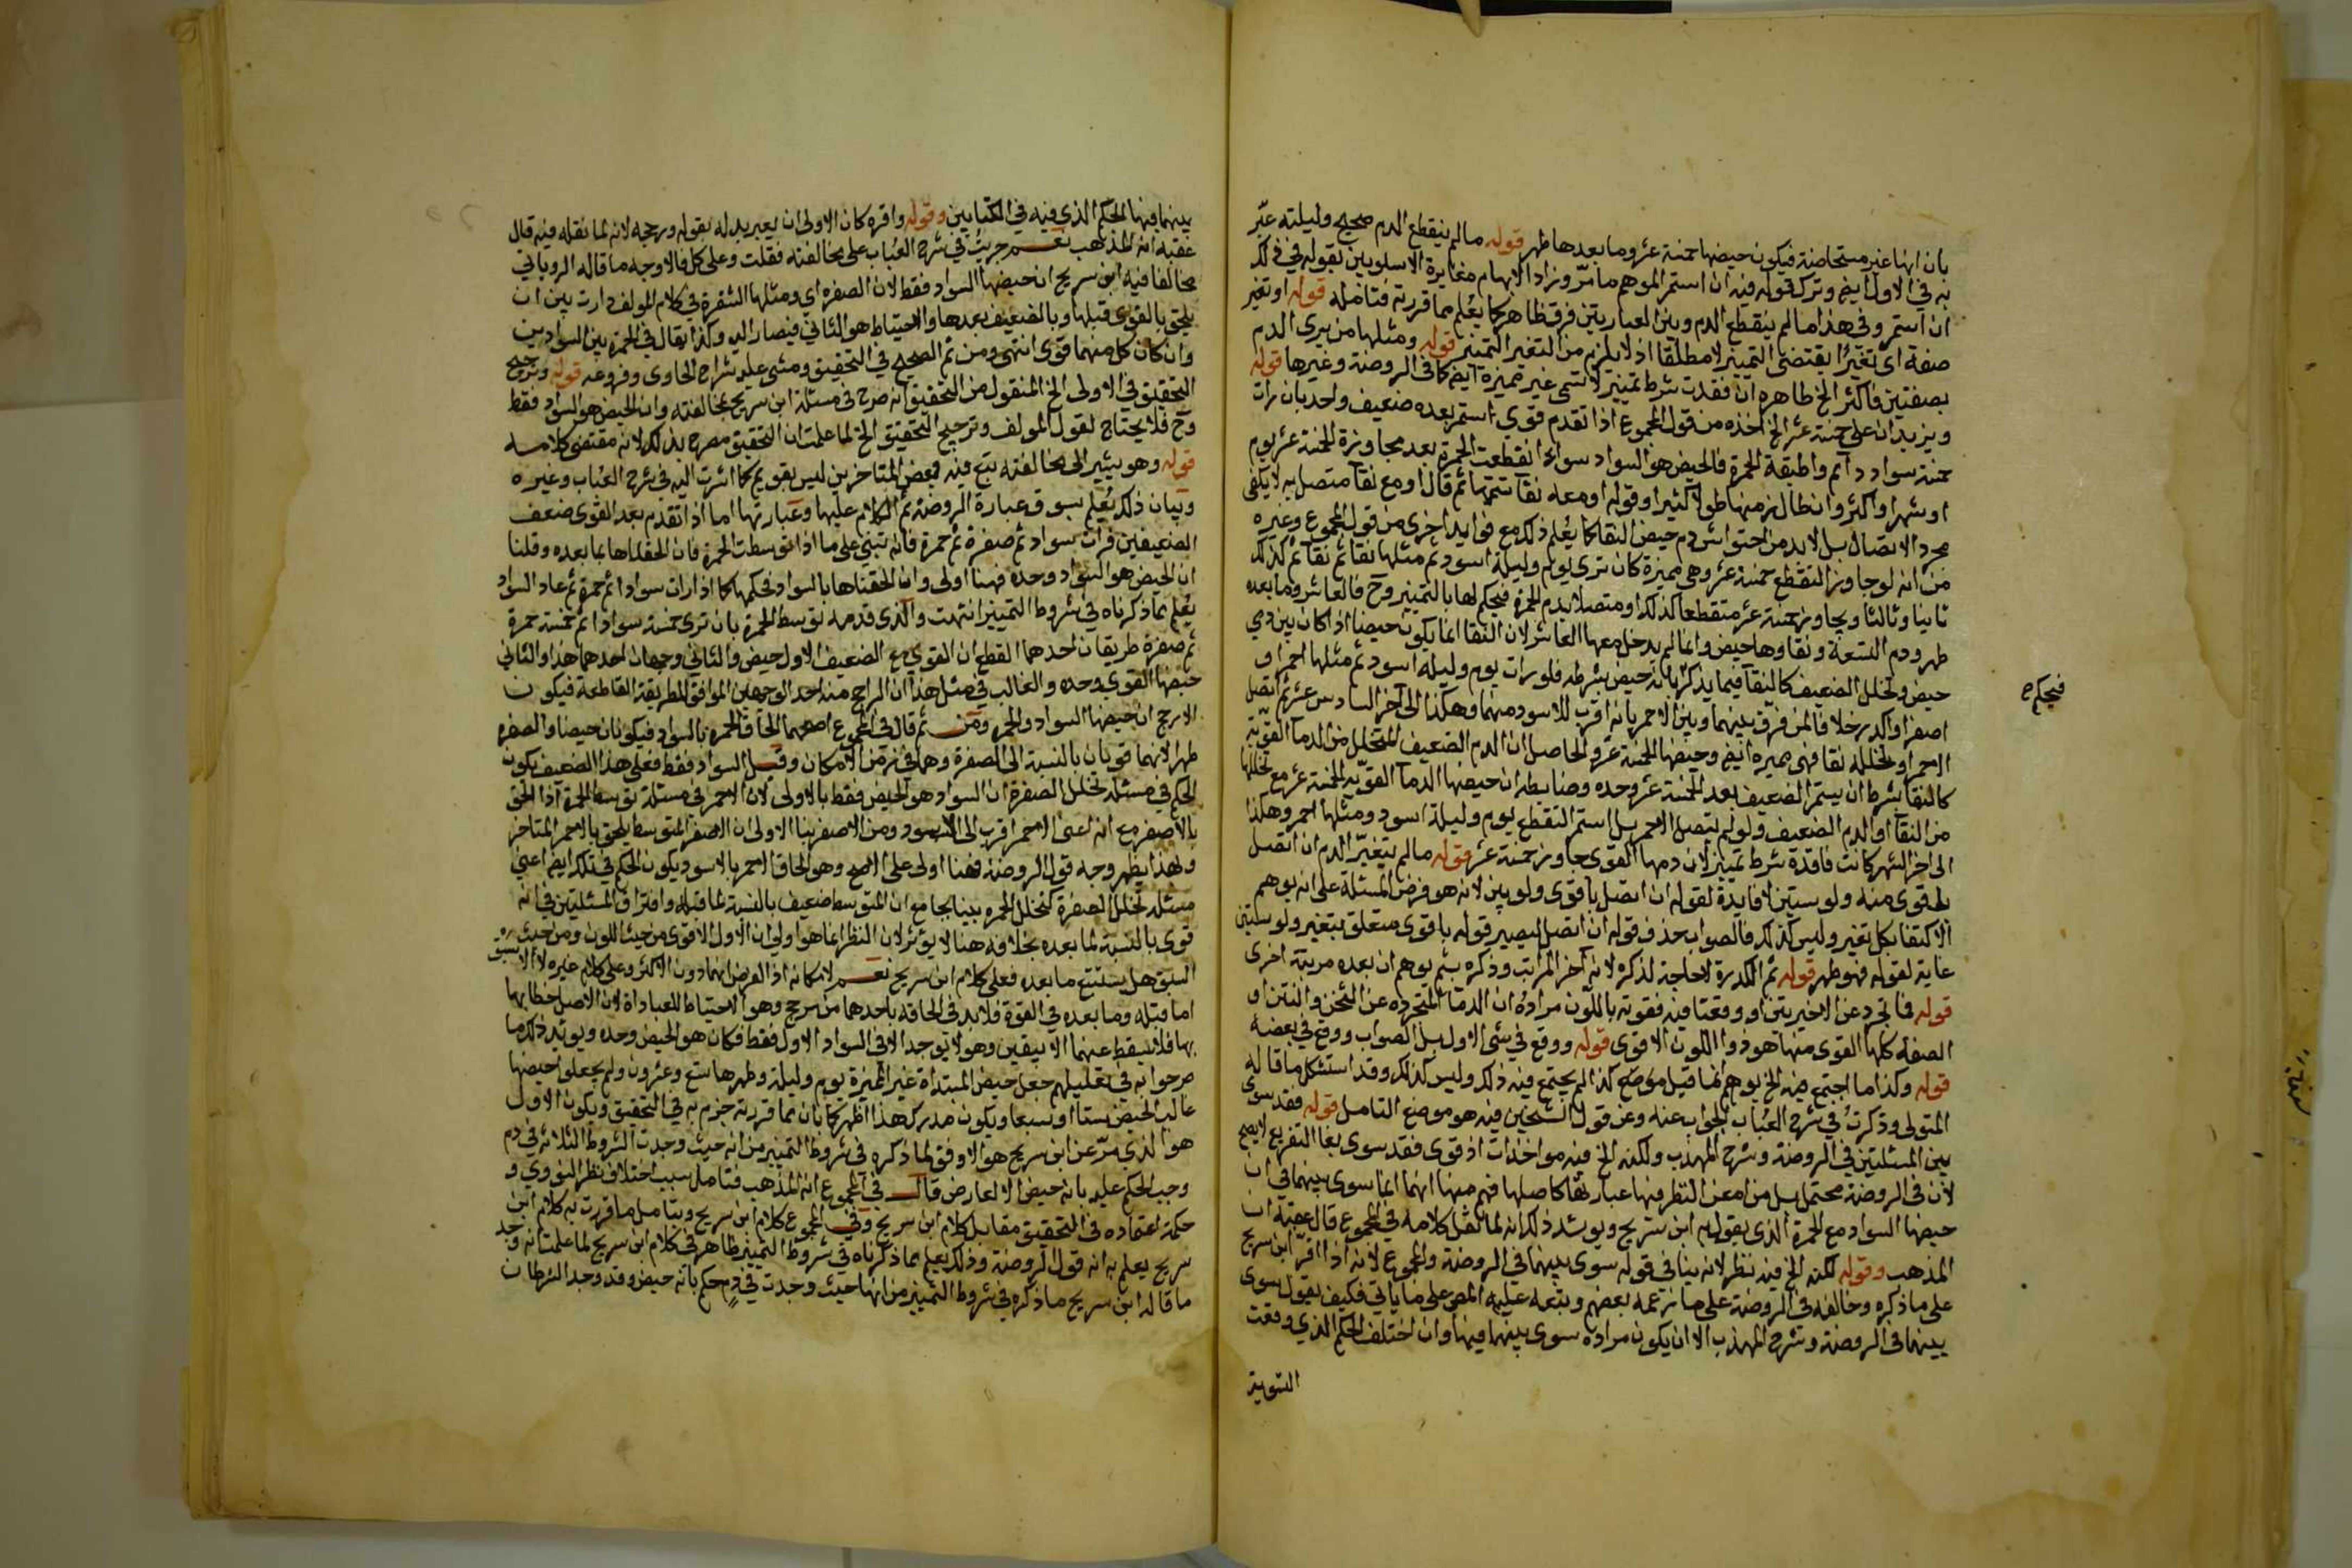 بان انها غير مستحاضة فيكون حيضها خمسة عشر وما بعدها طهر قوله ما لم ينقطع الدم صحيح وليلته عبّر
به في الاول ايضا وترك قوله فيه ان استمر الموهم ما مرّ وزاد الايهام مغايرة الاسلوبين بقوله في ذلك
ان استمر وفي هذا ما لم ينقطع الدم وبين العبارتين فرق ظاهر كما يُعلم مما قررته فتامله قوله او تغير
صفة اى تغيّرًا يقتضى التمييز لا مطلقا اذ لا يلزم من التغير التمييز قوله ومثلها من يرى الدم
بصفتين فاكثر الخ ظاهره ان فقدت شرط تمييز لا تسمى غير مميزة ايضا كما في الروضة وغيرها قوله
ويزيدان على خمسة عشر الخ اخذه من قول المجموع اذا تقدم قوي استمر بعده ضعيف واحد بان رات
خمسة سواد دائم واطبقة الحمرة فالحيض هو السواد سواء انقطعت الحمرة بعد مجاوزة الخمسة عشر بيوم
او شهر او اكثر وان طال زمنها طولا كثيرا وقوله او معه نقآ تتمتها ثم قال او مع نقآ متصل به لا يكفى
مجرد الاتصال بل لا بد من احتواش دم حيض النقا كما يُعلم ذلك مع فوايد اخرى من قول المجموع وغيره
من انه لو جاوز التقطع خمسة عشر وهى مميزة كان ترى يوم وليلة اسود ثم مثلها نقا ثم نقآ ثم كذلك
ثانيا وثالثا ويجاوز خمسة عشر متقطعا كذلك او متصلا بدم الحمرة فيحكم لها بالتمييز وح فالعاشر وما بعده
طهر ودم التسعة ونقاوها حيض وانما لم يدخل معها العاشر لان النقا انما يكون حيضا اذا كان بين دمي
حيض وتخلل الضعيف كالنقآ فيما يذكر بانه حيض بشرطه فلو رات يوم وليلة اسود ثم مثلها احمر او
اصفر او اكدر خلافا لمن فرق بينهما وبين الاحمر بانه اقرب للاسود منهما وهكذا الى آخر السادس عشر ثم اتصل
الاحمر او تخلله نقا فهى مميزه ايضا وحيضها الخمسة عشر والحاصل ان الدم الضعيف المتخلل من الدمآ القويّة
كالنقا بشرط ان يستمر الضعيف بعد الخمسة عشر وحده وضابطه ان حيضها الدمآ القويّة الخمسة عشر مع تخللها
من النقآ او الدم الضعيف ولو لم يتصل الاحمر بل استمر التقطع يوم وليلة اسود ومثلها احمر وهكذا
الى اخر الشهر كانت فاقدة شرط تمييز لان دمها القوى جاوز خمسة عشر قوله ما لم يتغيّر الدم ان اتصل
باقوى منه ولو بسنين لا فايدة لقوله ان اتصل باقوى ولو بين لانه هو فرض المسئلة على انه يوهم
الاكتفا بكل تغير وليس كذلك فالصواب حذف قوله ان اتصل ليصير قوله باقوى متعلق بتغير ولو بسنين
غاية لقوله فهو طهر قوله ثم الكدرة لا حاجة لذكره لانه آخر المراتب وذكره بثم يوهم ان بعده مرتبة اخرى
قوله فما تجرد عن الاخيرتين او وقعتا فيه فقوته باللون مراده ان الدمآ المتجرده عن الثخن والنتن او
الصفه كلها القوى منها هو ذوا اللون الاقوى قوله ووقع في شى الاول بل الصواب ووقع في بعضه
قوله وكذا ما اجتمع فيه الخ يوهم انما قيل موضع كذا لم يجتمع فيه ذلك وليس كذلك وقد استشكل ما قاله
المتولى وذكرتُ في شرح العُباب الجواب عنه وعن قول الشيخين فيه هو موضع التامل قوله فقد سوى
بين المسئلتين في الروضة وشرح المهذب ولكنه الخ فيه مواخذات اذ قوى فقد سوى بفا التفريع لا يصح
لان في الروضة محتمل بل من امعن النظر فيها عبارتها كاصلها فهم منها انهما انما سوى بينهما في ان
حيضها السواد مع الحمرة الذى يقول به ابن سريج ويويد ذلك انه لما نقل كلامه في المجموع قال عقبة ان
المذهب وقوله لكنه الخ فيه نظر لانه ينافى قوله سوى بينهما في الروضة والمجموع لانه اذا اقرّ ابن سريج
على ما ذكره وخالفه في الروضة على ما زعمه بعضهم وتبعه عليه المص على ما ياتى فكيف يقول سوى
بينهما في الروضة وشرح المهذب الا ان يكون مراده سوى بينهما فيها وان اختلف الحكم الذي وقعت
التسوية
فيحكم ح
بينهما فيها الحكم الذي فيه في الكتابين وقوله واقره كان الاولى ان يعبر بدله بقوله ورجحه لانه لما نقله فيه قال
عقبة انه المذهب نعم جريتُ في شرح العُباب على مخالفته فقلت وعلى كل فالاوجه ما قاله الروياني
مخالفا فيه ابن سريج ان حيضها السواد فقط لان الصفره اي ومثلها الشقرة في كلام المولف دارت بين ان
يلحق بالقوى قبلها وبالضعيف بعدها والاحتياط هو الثاني فيصار اليه وكذا يقال في الحمرة بين السوادين
وان كان كل منهما قوى انتهى ومن ثم الصحيح في التحقيق ومشى عليه شراح الحاوى وفروعه قوله وترجيح
التحقيق في الاولى الخ المنقول من التحقيق انه صرح في مسئلة ابن سريج بمخالفته وان الحيض هو السواد فقط
وح فلا يحتاج لقول المولف وترجيح التحقيق الخ لما علمت ان التحقيق مصرح بذلك لانه مقتضى كلامه
قوله وهو يشير الى مخالفته تبع فيه بعض المتاخرين ليس بقويم كما اشرت اليه في شرح العُباب وغيره
وبيان ذلك يُعلم بسوق عبارة الروضة ثم الكلام عليها وعبارتها اما اذا تقدم بعد القوى ضعف
الضعيفين فرات سواد ثم صفرة ثم حمرة فانه تبنى على ما اذا توسطت الحمرة فان الحقناها بما بعده وقلنا
ان الحيض هو السواد وحده فهنا اولى وان الحقناها بالسواد فحكمها كما اذا رات سوادا ثم حمرة ثم عاد السواد
يُعلم بما ذكرناه في شروط التمييز انتهت والذى قدمه توسط الحمرة بان ترى خمسة سوادا ثم خمسة حمرة
ثم صفرة طريقان احدهما القطع ان القوي مع الضعيف الاول حيض والثاني وجهان احدهما هذا والثاني
حيضها القوي وحده والغالب في مثل هذا ان الراجح منه احد الوجهين الموافق للطريقة القاطعة فيكون
الارجح ان حيضها السواد والحمره ومن ثم قال في المجموع اصحهما الحاق الحمره بالسواد فيكونان حيضا والصفره
طهر لانهما قويان بالنسبة الى الصفرة وهما في زمن الامكان وقيل السواد فقط فعلى هذا الضعيف يكون
الحكم في مسئلة تخلل الصفرة ان السواد هو الحيض فقط بالاولى لان الاحمر في مسئلة توسط الحمرة اذا الحق
بالاصفر مع انه اعنى الاحمر اقرب الى الاسود ومن الاصفر بينا الاولى ان الاصفر المتوسط يلحق بالاحمر المتاخر
ولهذا يظهر وجه قول الروضة فهنا اولى على الاصح وهو الحاق الاحمر بالاسود يكون الحكم في تلك ايضا اعني
مسئلة تخلل الصفرة كتخلل الحمره بينا بجامع ان المتوسط ضعيف بالنسبة لما قبله وافتراق المسئلتين في انه
قوى بالنسبة لما بعده بخلافه هنا لا يوثر لان النظر انما هو اولى ان الاول الاقوى من حيث اللون ومن حيث
السبق هل يستتبع ما بعده فعلى كلام ابن سريج نعم لامكانه اذ الفرض انهما دون الاكثر وعلى كلام غيره لا الا
اما قبله وما بعده في القوة فلا بد في الحاقه باحدهما من مرجح وهو الاحتياط للعباداة لان الاصل خطابها
بها فلا يسقط عنهما الا بيقين وهو لا يوجد الا في السواد الاول فقط فكان هو الحيض وحده ويويد ذلك ما
صرحوا به في تعليلهم جعل حيض المبتداة غير المميزة يوم وليلة وطهرها تسع وعشرون ولم يجعلوا حيضها
غالب الحيض ستا او سبعا ويكون مدرك هذا اظهر كما بان مما قررته جزم به في التحقيق ويكون الاول
هو الذي مرّ عن ابن سريج هو الاوفق لما ذكره في شروط التمييز من انه حيث وجدت الشروط الثلاثة في دم
وجب الحكم عليه بانه حيض الا لعارض قال في المجموع انه المذهب فتامل سبب اختلاف نظر النووي و
حكمة اعتماده في التحقيق مقابل كلام ابن سريج وفي المجموع كلام ابن سريج وبتامل ما قررت به كلام ابن
سريج يعلم به انه قول الروضة وذلك يعلم بما ذكرناه في شروط التمييز ظاهر في كلام ابن سريج لما علمت انه وجد
ما قاله ابن سريج ما ذكره في شروط التمييز من انها حيث وجدت في دمٍ حكم بانه حيض وقد وجد الشرطان